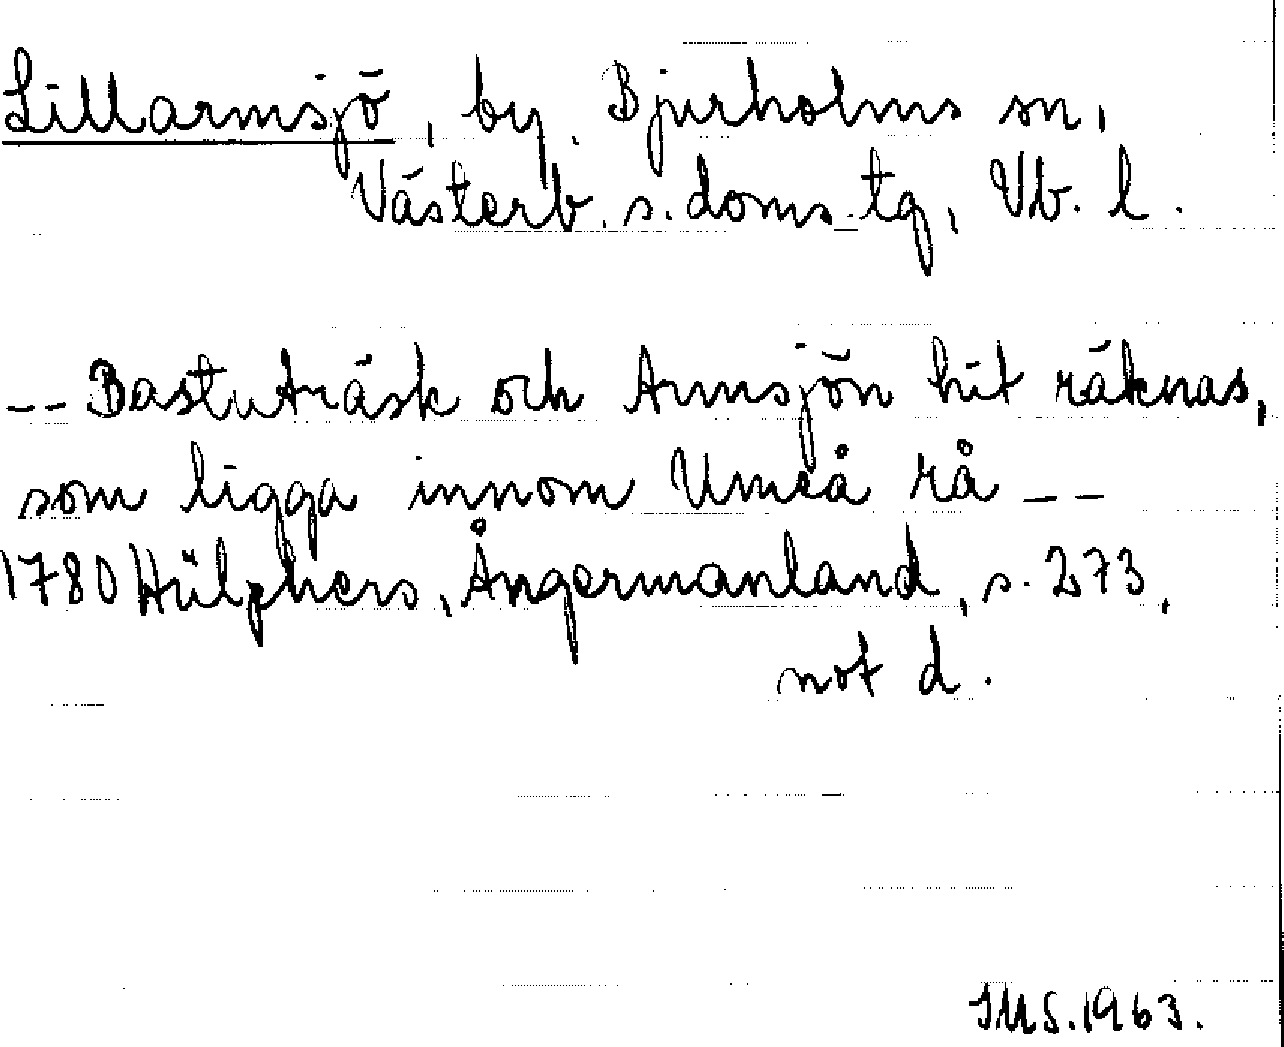 Lillarmsjö, by, Bjurholms sn,
Västerb. s. doms. tg, Vb. l.
-- Bastuträsk och Armsjön hit räknas,
som ligga innom Umeå rå --
1780 Hülphers, Ångermanland, s. 273,
not d.
IMS. 1963.